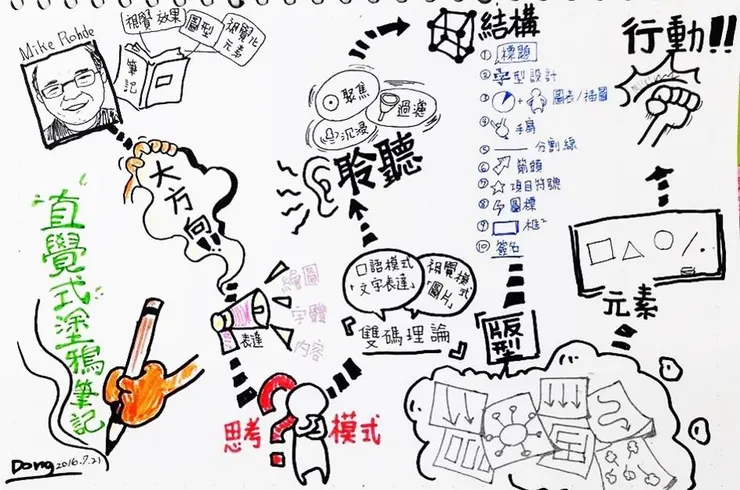 Mike Rohde
視覺效果
圖型
視覺化
元素
筆記
大方向!!
"直覺式塗鴉筆記"
Dong 2016.7.21
表達
繪圖
字體
內容
思考模式
口語模式
「文字表達」
視覺模式
「圖片」
『雙碼理論』
聆聽
聚焦
過濾
沉浸
結構
① 標題
② 字型設計
③ + 圖表/插圖
④ 手寫
⑤ 分割線
⑥ 箭頭
⑦ 項目符號
⑧ 圖標
⑨ 框
⑩ 簽名
「版型」
元素
行動!!